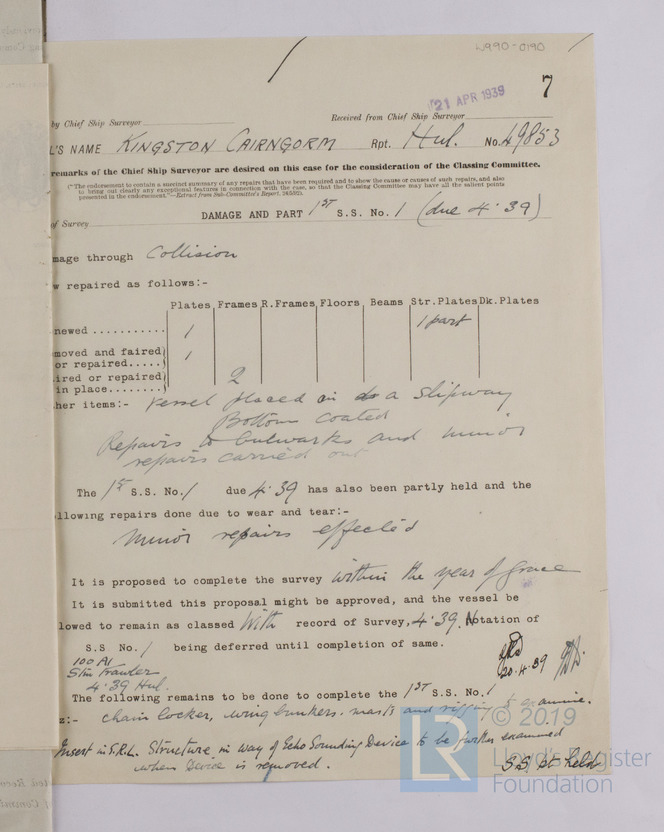 W990-0190
7
21 APR 1939
by Chief Ship Surveyor
Received from Chief Ship Surveyor
L'S NAME KINGSTON CAIRNGORM Rpt. Hul. No. 49853
remarks of the Chief Ship Surveyor are desired on this case for the consideration of the Classing Committee.
(*The endorsement to contain a succinct summary of any repairs that have been required and to show the cause or causes of such repairs, and also
to bring out clearly any exceptional features in connection with the case, so that the Classing Committee may have all the salient points
presented in the endorsement."—Extract from Sub-Committee's Report,
of Survey DAMAGE AND PART 1ST S.S. No. 1 (due 4.39)
mage through Collision
w repaired as follows:-
Plates Frames R.Frames Floors Beams Str.Plates Dk.Plates
newed ........... 1 1 part
moved and faired)
or repaired.....) 1
ired or repaired)
in place........) 2
her items:- Vessel placed on a slipway
Bottom coated
Repairs to bulwarks and minor
repairs carried out
The 1st S.S. No. 1 due 4.39 has also been partly held and the
llowing repairs done due to wear and tear:-
Minor repairs effected
It is proposed to complete the survey within the year of grace
It is submitted this proposal might be approved, and the vessel be
lowed to remain as classed With record of Survey, 4.39. Notation of
S.S. No. 1 being deferred until completion of same.
100 A1
Stm Trawler
4.39 Hul.
20.4.39
The following remains to be done to complete the 1ST S.S. No. 1
z:- chain locker, wing bunkers. masts and rigging to examine.
Insert in S.R.L. Structure in way of Echo Sounding Device to be further examined
when Device is removed.
S.S. pt held
© 2019
Lloyd's Register
Foundation
LR